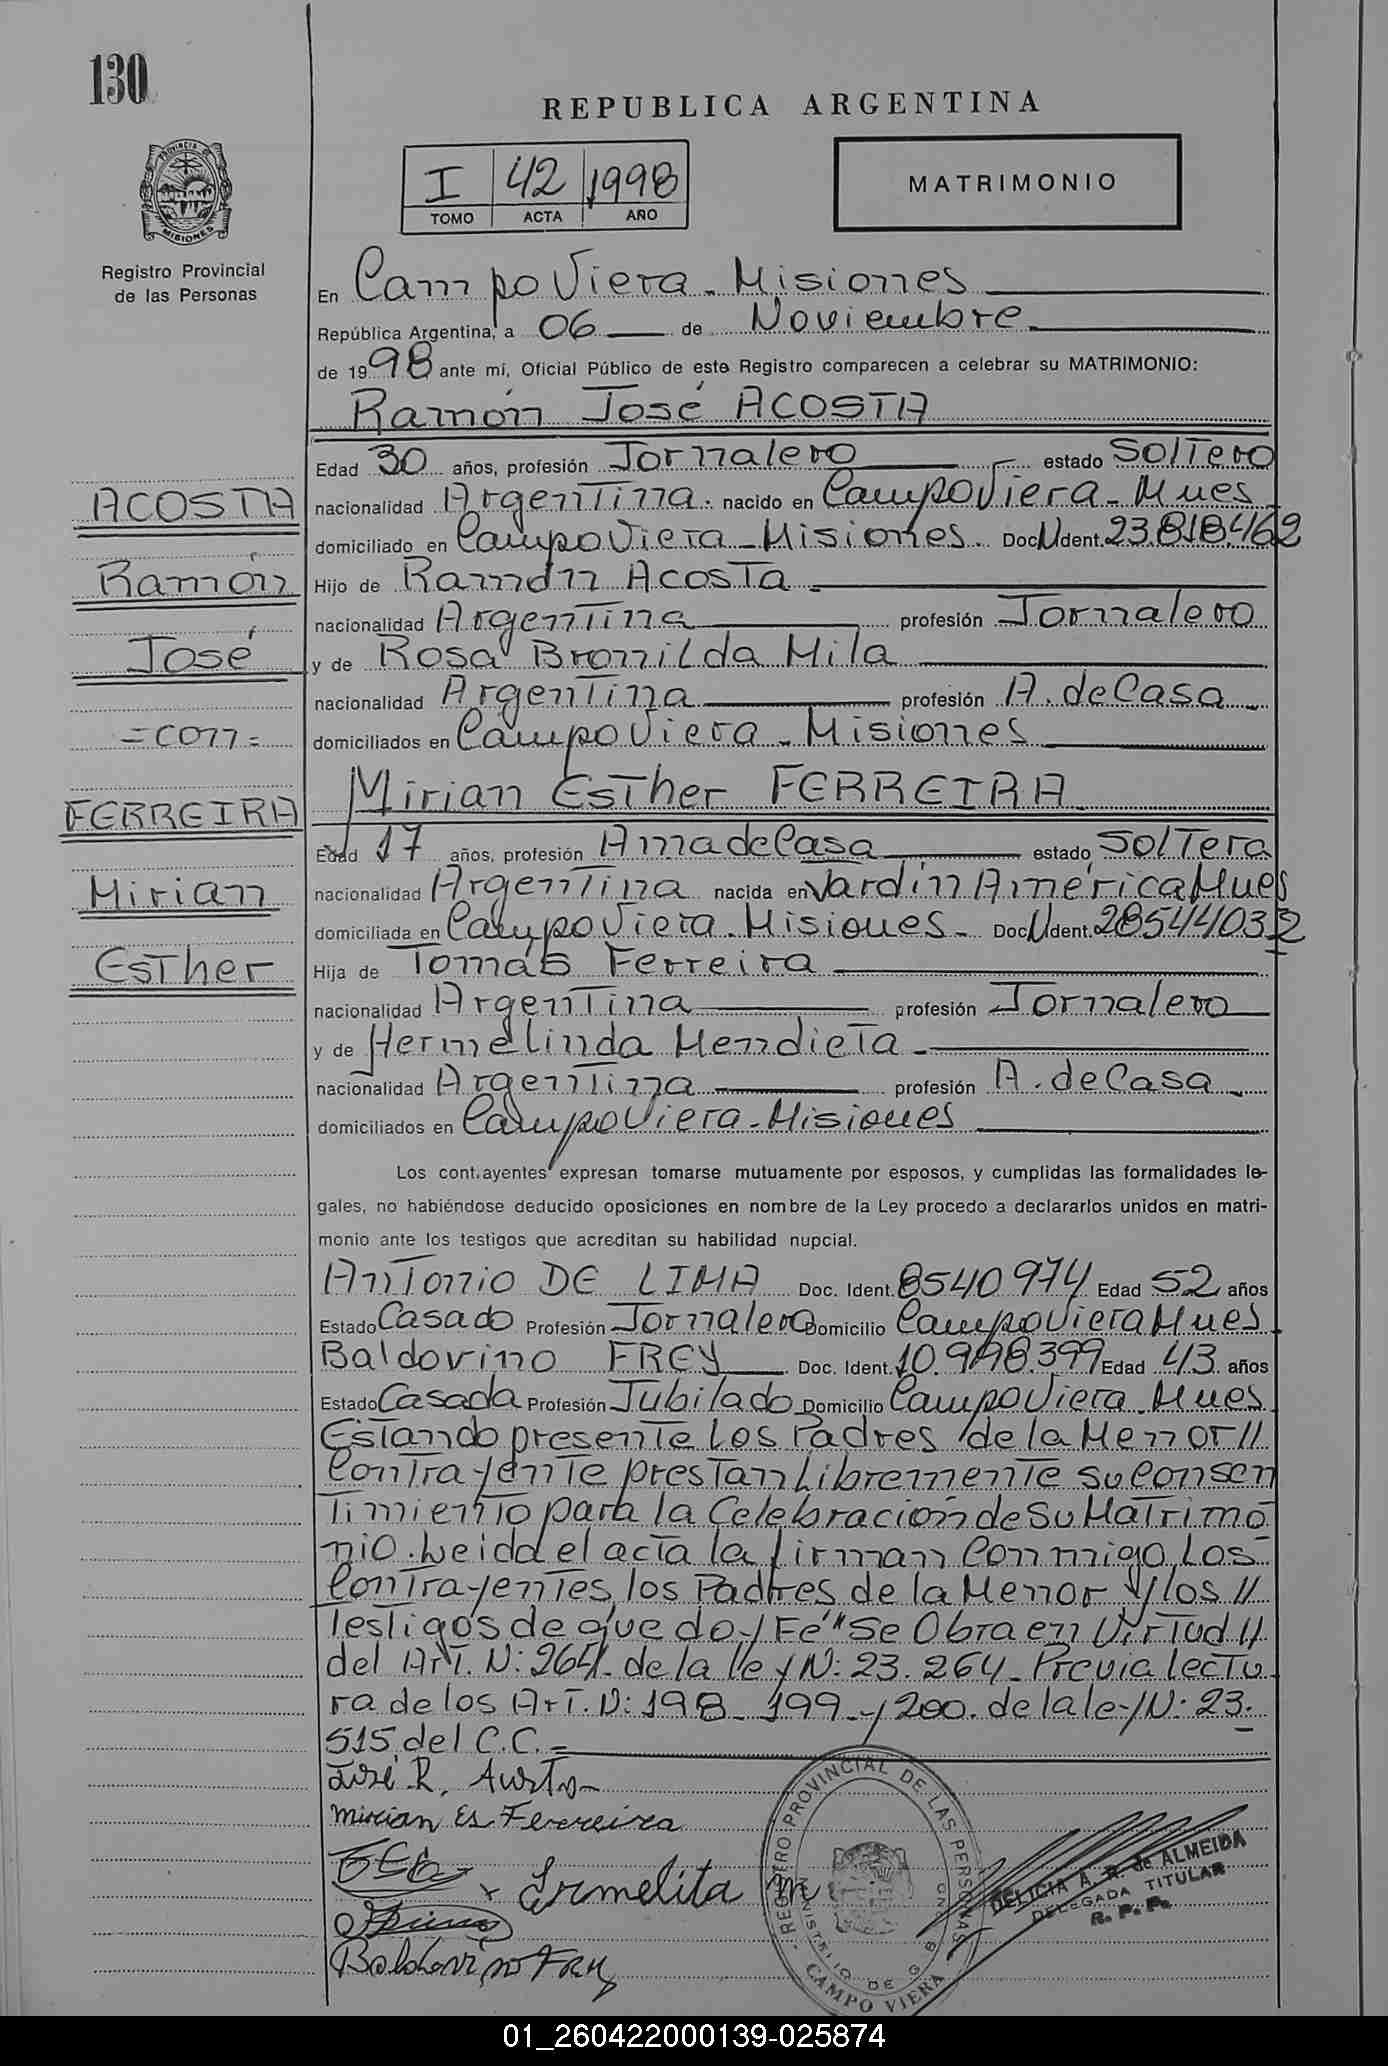 130
REPUBLICA ARGENTINA
I 42 1998
TOMO ACTA AÑO
MATRIMONIO
PROVINCIA DE
MISIONES
Registro Provincial
de las Personas
En Campo Viera - Misiones
República Argentina, a 06 de Noviembre
de 1998 ante mí, Oficial Público de este Registro comparecen a celebrar su MATRIMONIO:
Ramón José ACOSTA
Edad 30 años, profesión Jornalero estado Soltero
nacionalidad Argentina. nacido en Campo Viera - Mnes
domiciliado en Campo Viera - Misiones. Doc. N Ident. 23.818.462
Hijo de Ramón Acosta
nacionalidad Argentina profesión Jornalero
y de Rosa Bronilda Mila
nacionalidad Argentina profesión A. de Casa
domiciliados en Campo Viera - Misiones
Mirian Esther FERREIRA
Edad 17 años, profesión Ama de Casa estado Soltera
nacionalidad Argentina nacida en Jardín América Mnes
domiciliada en Campo Viera - Misiones - Doc. N Ident. 28544032
Hija de Tomás Ferreira
nacionalidad Argentina profesión Jornalero
y de Hermelinda Mendieta
nacionalidad Argentina profesión A. de Casa
domiciliados en Campo Viera - Misiones
ACOSTA
Ramón
José
= con =
FERREIRA
Mirian
Esther
Los contrayentes expresan tomarse mutuamente por esposos, y cumplidas las formalidades le-
gales, no habiéndose deducido oposiciones en nombre de la Ley procedo a declararlos unidos en matri-
monio ante los testigos que acreditan su habilidad nupcial.
Antonio DE LIMA Doc. Ident. 8540974 Edad 52 años
Estado Casado Profesión Jornalero Domicilio Campo Viera Mnes
Baldovino FREY Doc. Ident. 10.998.399 Edad 43 años
Estado Casada Profesión Jubilado Domicilio Campo Viera Mnes
Estando presente los Padres de la Menor //
Contrayente prestan libremente su consen
timiento para la Celebración de su Matrimo
nio. Leida el acta la firman Conmigo los
Contrayentes, los Padres de la Menor y los //
Testigos de que doy Fé" Se Obra en Virtud //
del Art. N: 264. de la ley N: 23.264 - Previa lectu
ra de los Art. N: 198 - 199 - y 200. de la ley N: 23.
515 del C.C. =
José R. Acosta
Mirian Es Ferreira
Ermelita M
Baldovino Frey
REGISTRO PROVINCIAL DE LAS PERSONAS
MINISTERIO DE GOB
CAMPO VIERA
DELICIA A. R. de ALMEIDA
DELEGADA TITULAR
R. P. P.
01_260422000139-025874